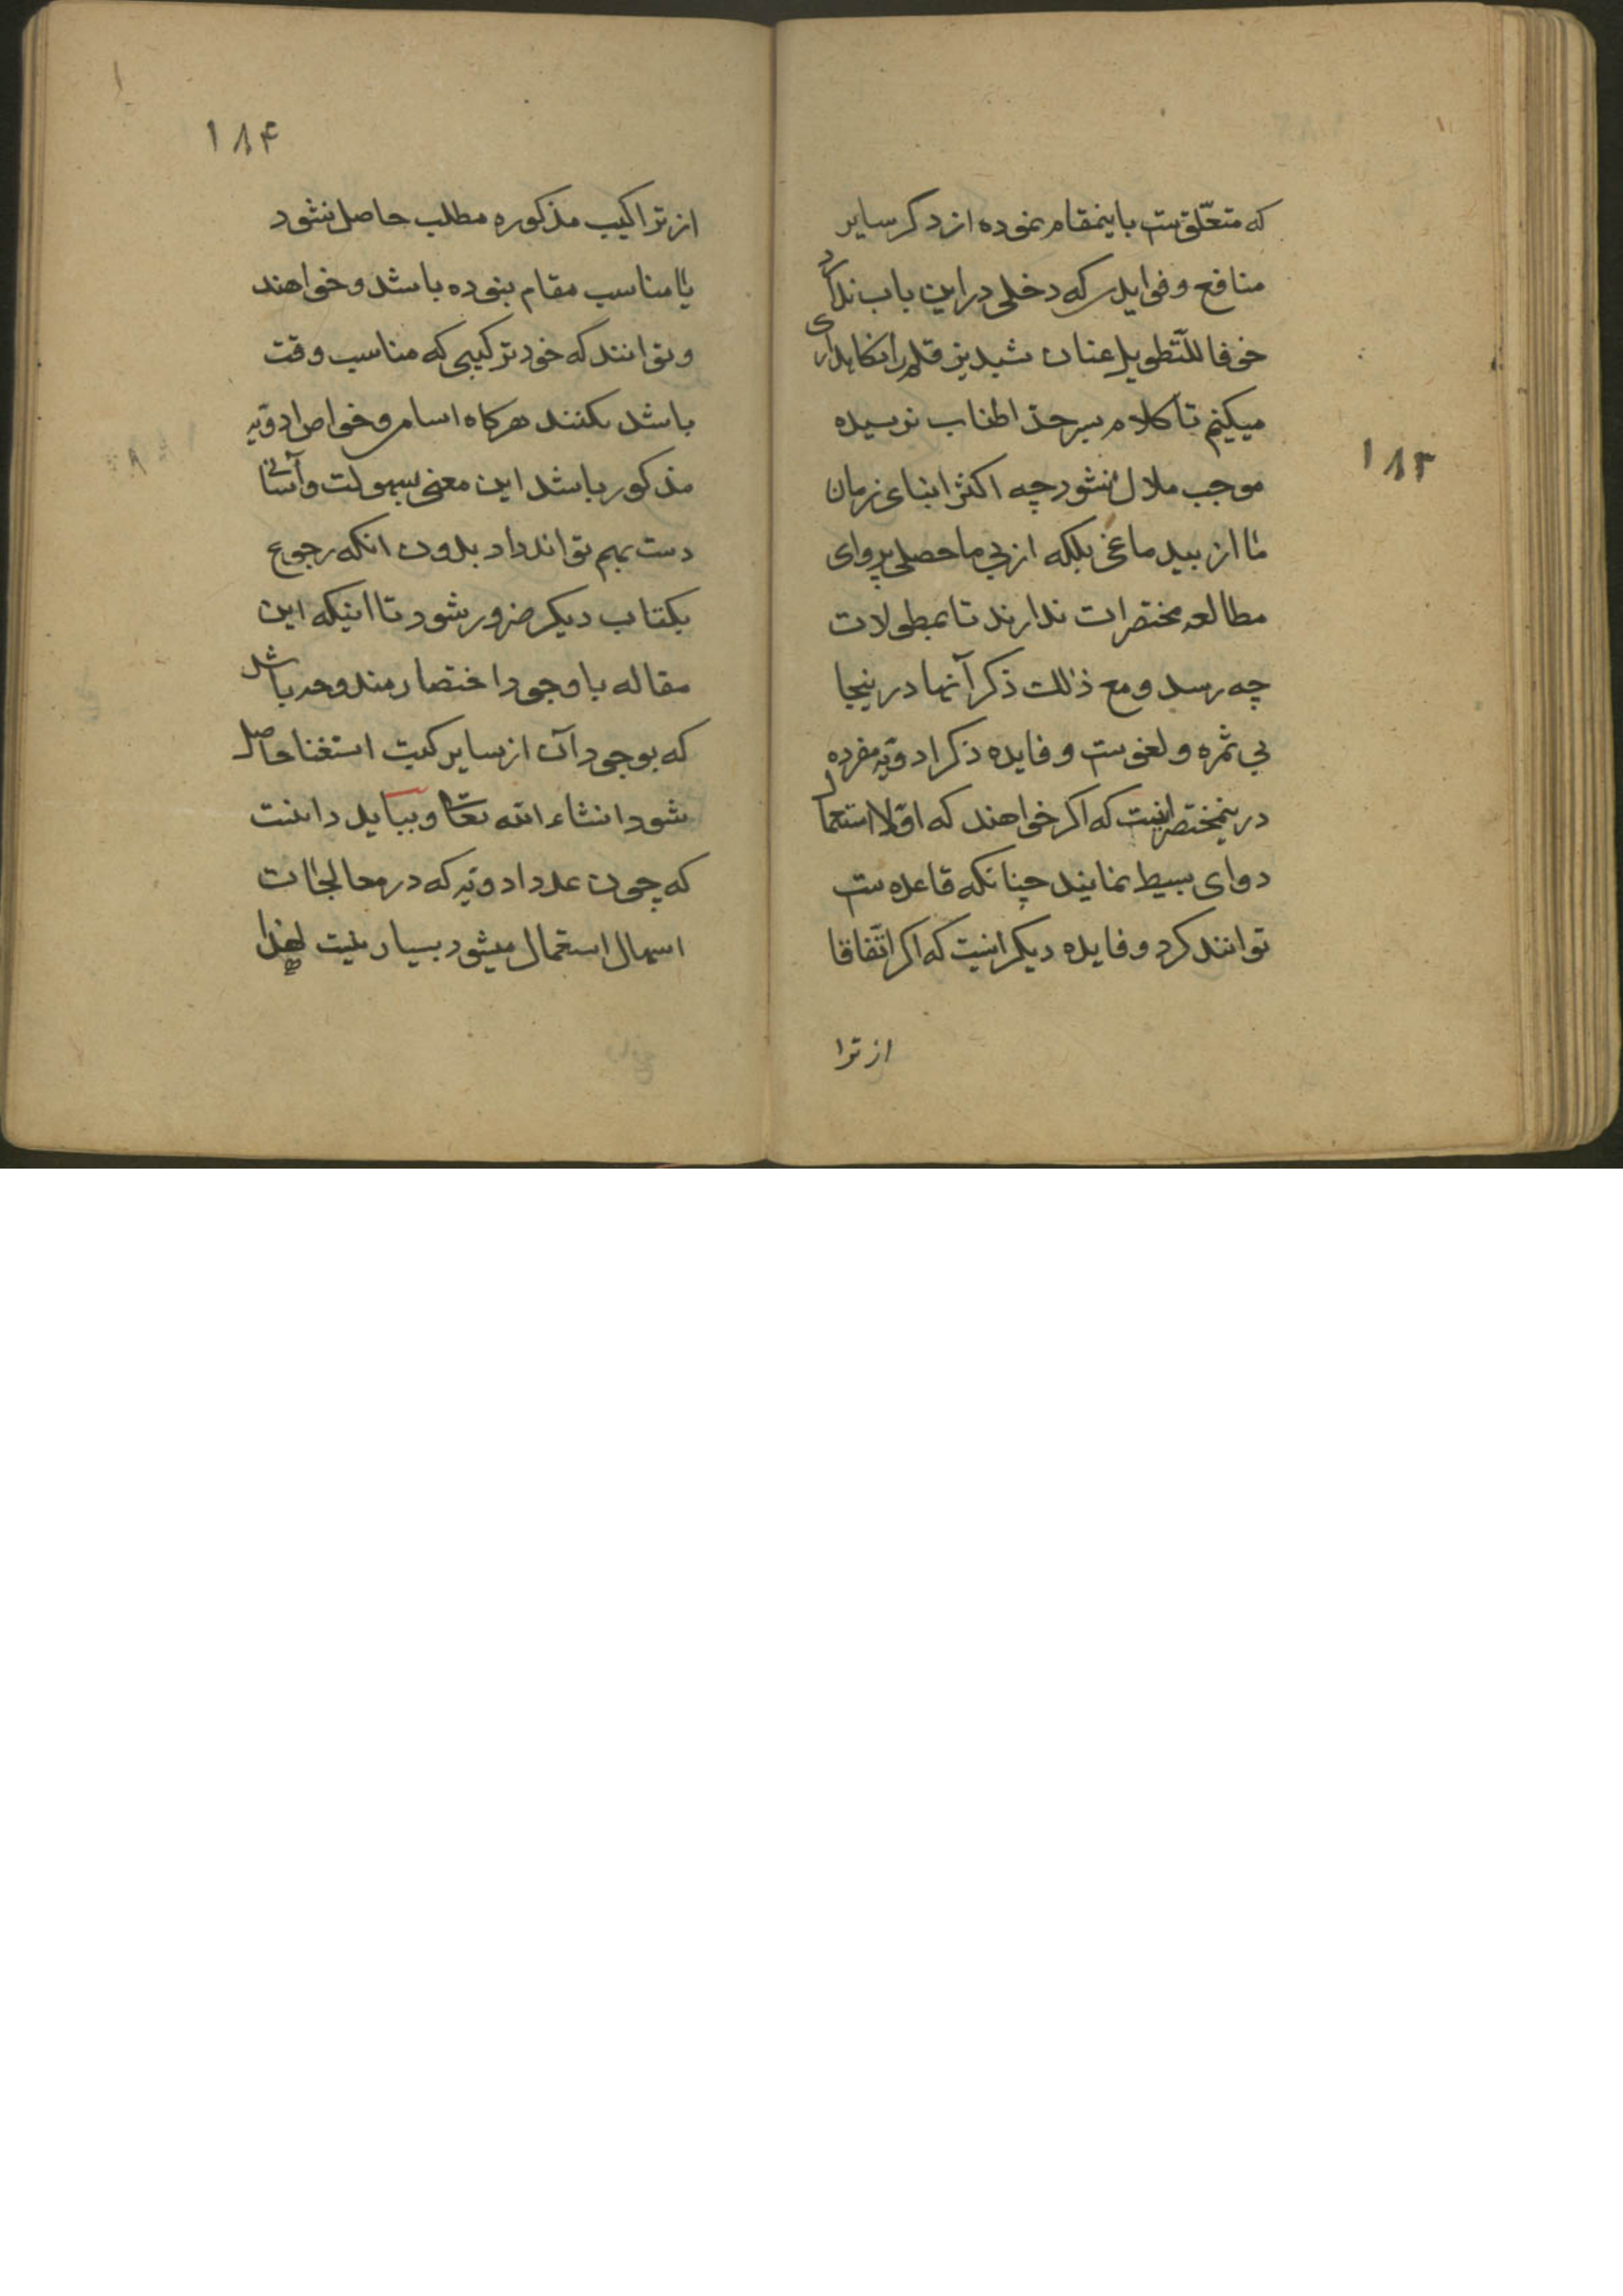 ۱۸۳
که متعلّقست باینمقام نموده از ذکر سایر
منافع و فوایدیکه دخلی در این باب ندارد
خوفا للتّطویل عنان شبدیز قلم را نکاهداری
میکنیم تا کلام بسر حدّ اطناب نرسیده
موجب ملال نشود چه اکثر ابنای زمان
ما از بیدماغی بلکه از بی ماحصلی پروای
مطالعه مختصرات ندارند تا بمطولات
چه رسد و مع ذلک ذکر آنها در ینجا
بی ثمره و لغوست و فایده ذکر ادویّه مفرده
در ینمختصر اینست که اکر خواهند که اوّلا استعمال
دوای بسیط نمایند چنانکه قاعده ست
توانند کرد و فایده دیکر اینست که اکر اتّفاقا
از ترا
۱۸۴
از تراکیب مذکوره مطلب حاصل نشود
یا مناسب مقام نبوده باشد و خواهند
و توانند که خود ترکیبی که مناسب وقت
باشد بکنند هرکاه اسامی و خواص ادویّه
مذکور باشد این معنی بسهولت و آسانی
دست بهم تواند داد بدون انکه رجوع
بکتاب دیکر ضرور شود تا اینکه این
مقاله با وجود اختصار مندوحه باشد
که بوجود آن از سایر کتب استغنا حاصل
شود انشاء الله تعا و بباید دانست
که چون عدد ادویّه که در معالجات
اسهال استعمال میشود بسیار نیست لهذا